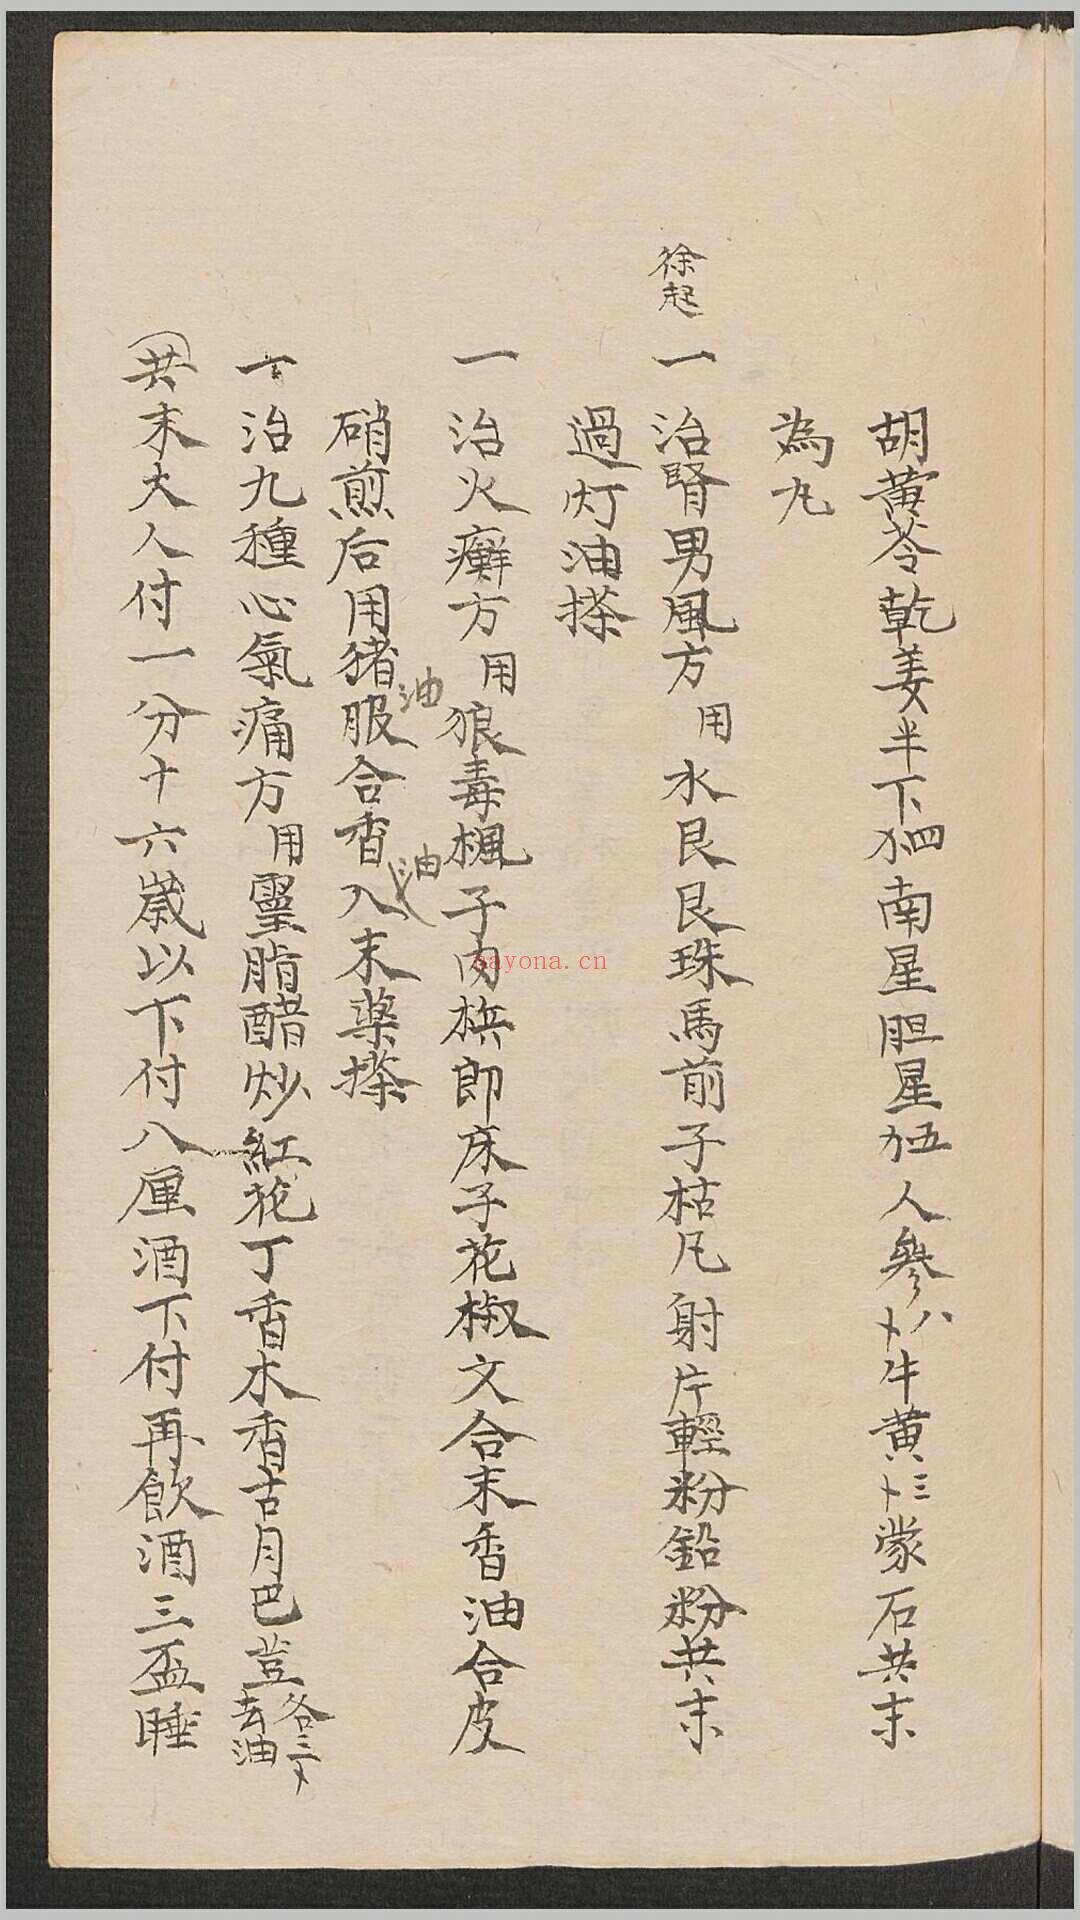 胡黄苓乾姜半下四南星胆星五人參八牛黄三濛石共末
為丸
徐起
一治腎男風方用水艮艮珠馬前子枯凡射片輕粉鉛粉共末
過灯油搽
一治火癬方用狼毒楓子肉梹郎床子花椒文合末香油合皮
硝煎后用猪服油合香油入末藥搽
一治九種心氣痛方用靈脂醋炒紅花丁香木香古月巴荳去油各三
共末大人付一分十六歲以下付八厘酒下付再飲酒三盃睡
sayona.cn